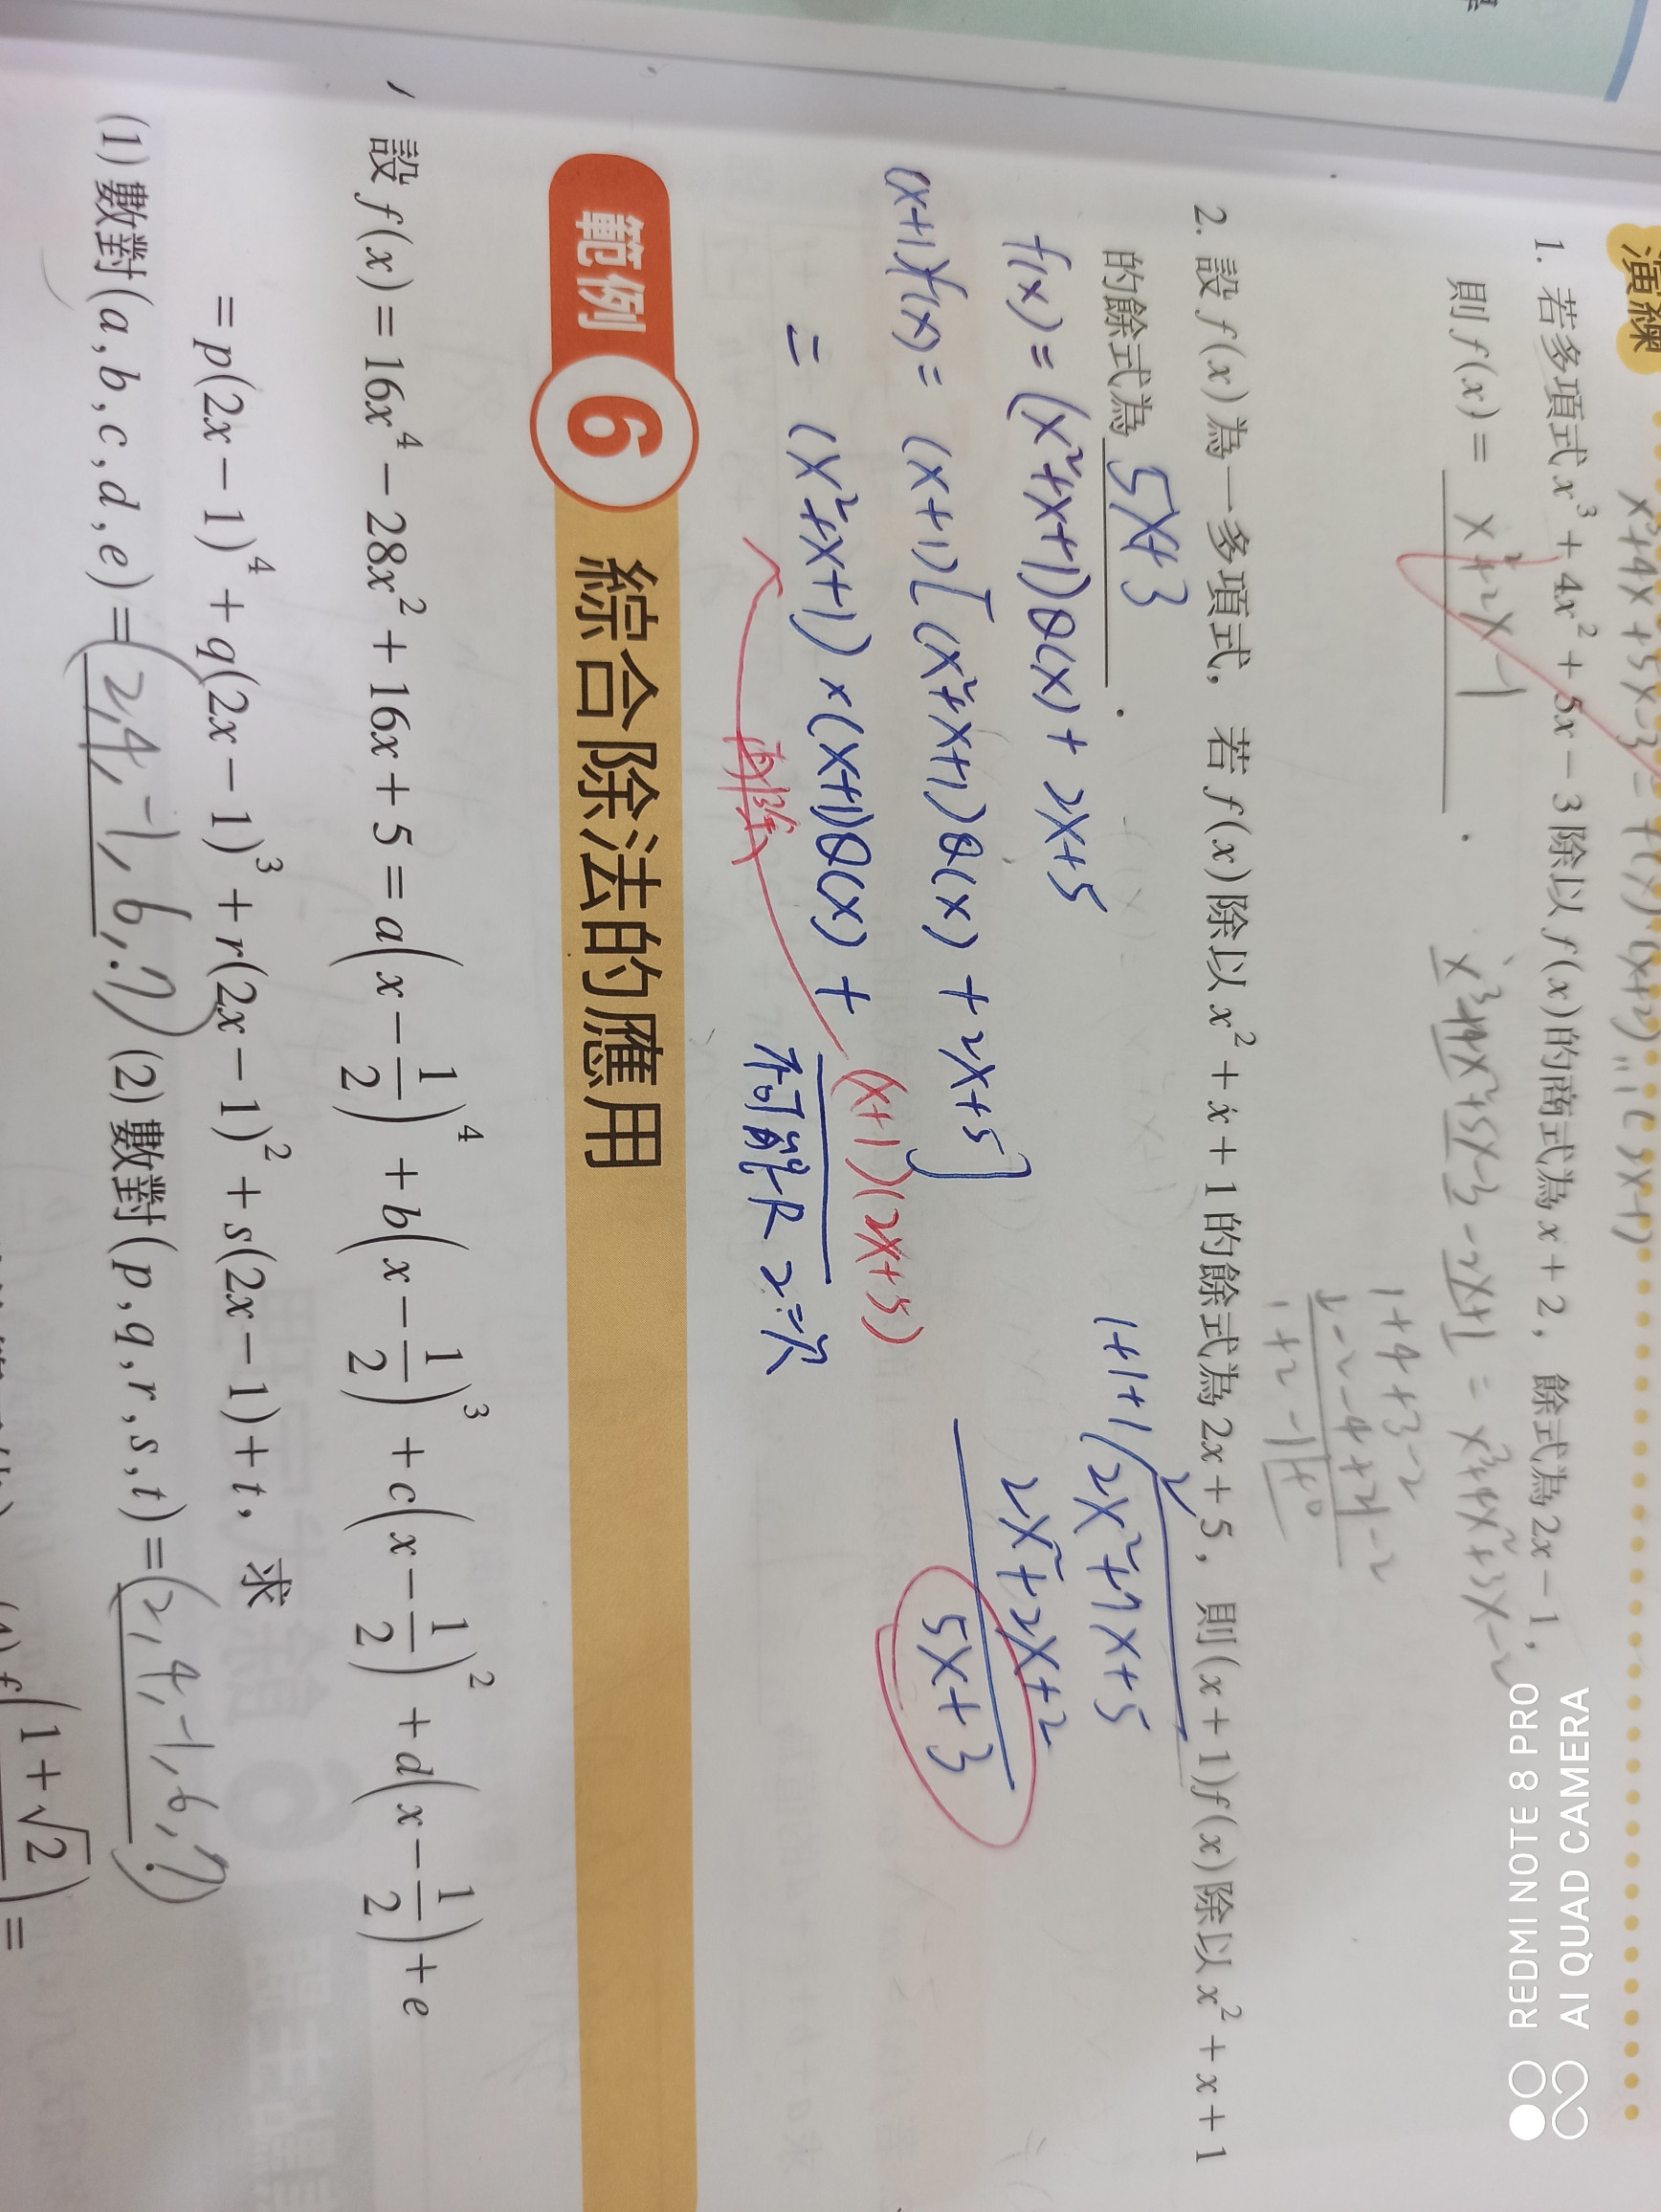 演練
x³+4x²+5x-3=f(x)(x+2)
1. 若多項式 x³ + 4x² + 5x - 3 除以 f(x) 的商式為 x + 2，餘式為 2x - 1，
則 f(x) = x²+2x-1 .
x³+4x²+5x-3-2x+1 = x³+4x²+3x-2
1+4+3-2
-2-4+2
1+2-1+0
2. 設 f(x) 為一多項式，若 f(x) 除以 x² + x + 1 的餘式為 2x + 5，則 (x + 1)f(x) 除以 x² + x + 1
的餘式為 5x+3 .
f(x) = (x²+x+1)Q(x) + 2x+5
(x+1)f(x) = (x+1)[(x²+x+1)Q(x) + 2x+5]
= (x²+x+1)×(x+1)Q(x) + (x+1)(2x+5)
再除
不可能R 2次
2
1+1+1 2x²+7x+5
2x²+2x+2
5x+3
範例 6 綜合除法的應用
設 f(x) = 16x⁴ - 28x² + 16x + 5 = a(x - 1/2)⁴ + b(x - 1/2)³ + c(x - 1/2)² + d(x - 1/2) + e
= p(2x - 1)⁴ + q(2x - 1)³ + r(2x - 1)² + s(2x - 1) + t，求
(1) 數對(a, b, c, d, e) = (2,4,-1,6,7) (2) 數對(p, q, r, s, t) = (2,4,-1,6,7)
f(1+√2) =
REDMI NOTE 8 PRO
AI QUAD CAMERA